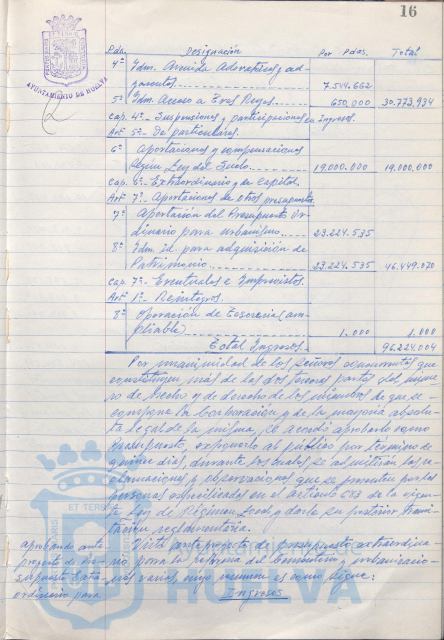 16
AYUNTAMIENTO DE HUELVA
Pda. Designación Por Pdas. Total
4ª Idm. Avenida Adoratrices y ad-
yacentes 7.544.662
5ª Idm. Acceso a Tres Reyes 650.000 30.773.934
Cap. 4º.- Subvenciones y participaciones en Ingresos.
Art. 5º.- De particulares.
6ª Aportaciones y compensaciones
según Ley del Suelo 19.000.000 19.000.000
Cap. 6º.- Extraordinario y de capital.
Art. 7º.- Aportaciones de otros presupuestos.
7ª Aportación del Presupuesto Or-
dinario para urbanismo 23.224.535
8ª Idm. id. para adquisición de
Patrimonio 23.224.535 46.449.070
Cap. 7º.- Eventuales e Imprevistos.
Art. 1º.- Reintegros.
8ª Operación de Tesorería (am-
pliable) 1.000 1.000
Total Ingresos 96.224.004
Por unanimidad de los señores concurrentes que
constituyen más de las dos terceras partes del núme-
ro de hecho y de derecho de los miembros de que se
compone la Corporación y de la mayoría absolu-
ta legal de la misma, se acordó aprobarlo como
Presupuesto, exponerlo al público por término de
quince días, durante los cuales se admitirán las re-
clamaciones y observaciones que se presenten por las
personas especificadas en el artículo 683 de la vigen-
te Ley de Régimen Local y darle su posterior trami-
tación reglamentaria.
aprobando ante
proyecto de Pre-
supuesto Extra-
ordinario para
Visto anteproyecto de Presupuesto extraordina-
rio para la reforma del Cementerio y urbanizacio-
nes varias, cuyo resumen es como sigue:
Ingresos
ET TERRAE
Ayuntamiento de
HUELVA